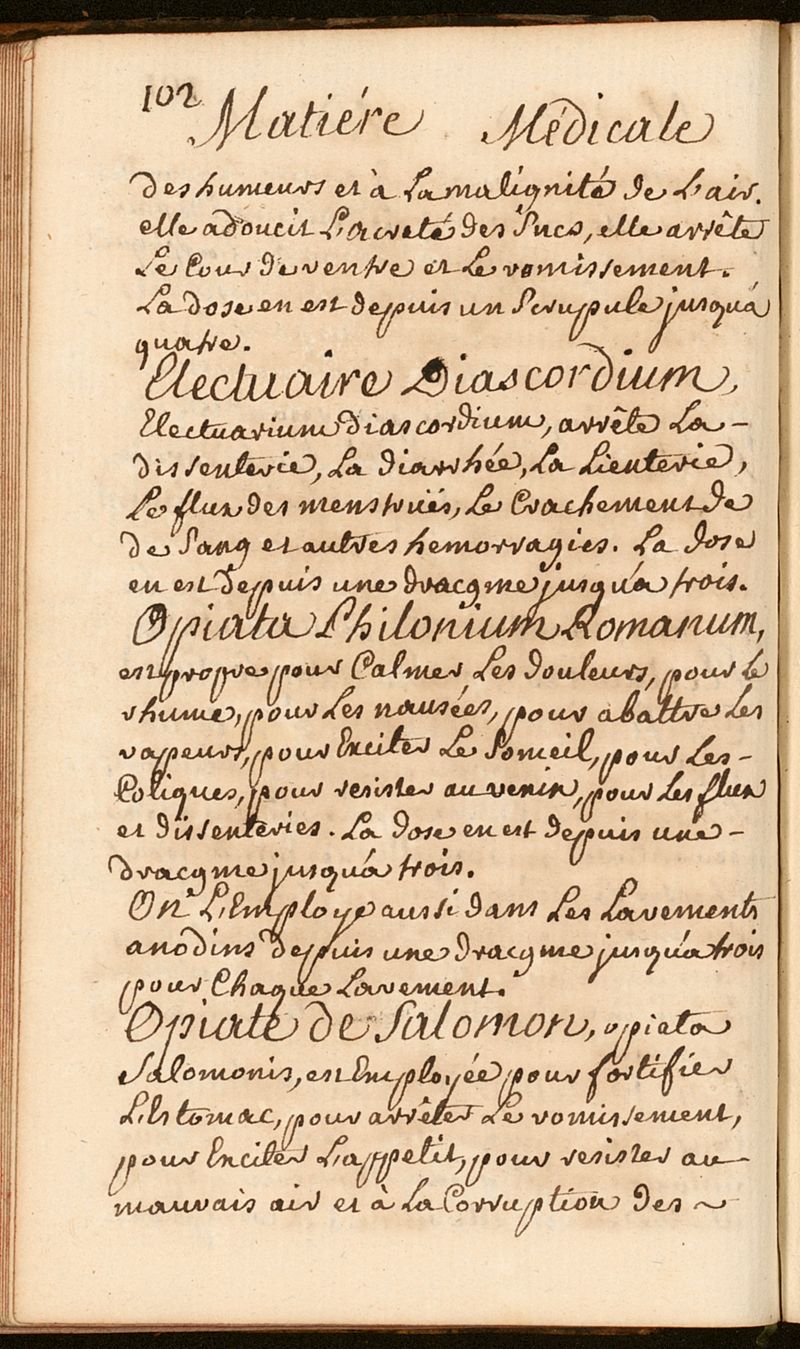 102
Matiére Médicale
des humeurs et à La malignité de L'air.
elle adoucit L'acreté des Sucs, elle arrête
Le Cour de ventre et Le vomissement.
La dose en est depuis un Scrupule jusqu'à
quatre.
Electuaire Diascordium,
Electuarium Diascordium, arrête La -
dissenterie, La diarrhée, La Lienterie,
Le flux des menstruës, Le Crachement de
de Sang et autres hemorragies. La dose
en est depuis une dracgme jusqu'a trois.
Opiata Philonium Romanum,
est propre pour Calmer Les douleurs, pour Le
rhume, pour Les nausées, pour abattre Les
vapeurs, pour Exciter Le Someil, pour Les -
Coliques, pour resister au venin, pour Les flux
et dissenteries. La dose en est depuis une -
dracgme jusqu'a trois.
On L'Employe aussi dans Les Lavements
anodins depuis une dracgme jusqu'a trois
pour Chaque Lavement.
Opiate de Salomon, opiata
Salomonis, est Employée pour fortifier
L'Estomac, pour arrêter Le vomissement,
pour Exciter L'appetit, pour resister au
mauvais air et à La Corruption des ~